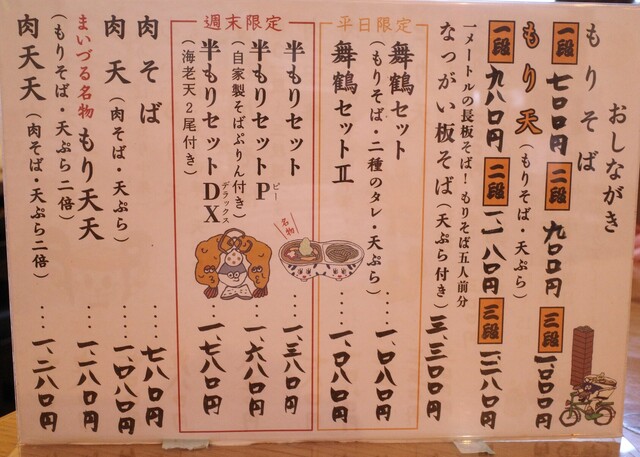 おしながき
もりそば
一段 七〇〇円 二段 九〇〇円 三段 一、〇〇〇円
もり天（もりそば・天ぷら）
一段 九八〇円 二段 一、一八〇円 三段 一、二八〇円
一メートルの長板そば！もりそば五人前分
なっがい板そば（天ぷら付き） 三、三〇〇円
平日限定
舞鶴セット
（もりそば・二種のタレ・天ぷら） ‥‥一、〇八〇円
舞鶴セットⅡ ‥‥一、〇八〇円
名物
週末限定
半もりセット ‥‥一、三八〇円
半もりセットP ピー
（自家製そばぷりん付き） ‥‥一、六八〇円
半もりセットDX デラックス
（海老天２尾付き） ‥‥一、七八〇円
肉そば ‥‥七八〇円
肉天（肉そば・天ぷら） ‥‥一、〇八〇円
まいづる名物 もり天天
（もりそば・天ぷら二倍） ‥‥一、二八〇円
肉天天（肉そば・天ぷら二倍） ‥‥一、二八〇円